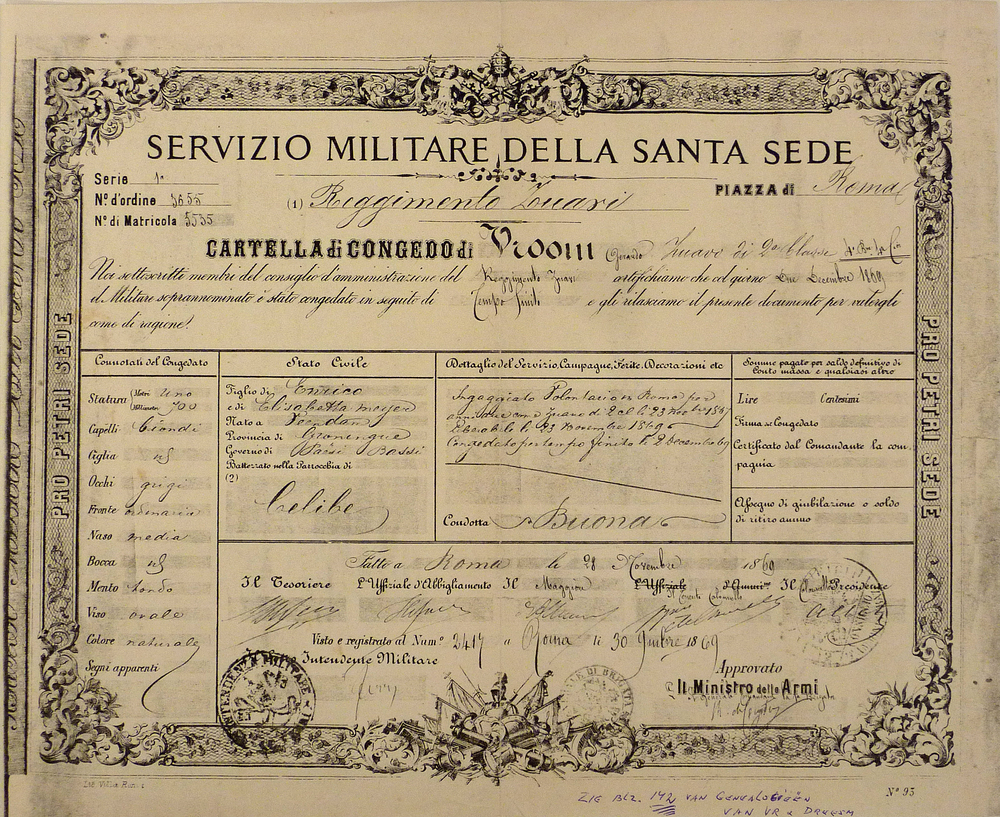 SERVIZIO MILITARE DELLA SANTA SEDE
Serie 1a
N.º d'ordine 3655
N.º di Matricola 5535
PIAZZA di Roma
(1) Reggimento Zuavi
CARTELLA di CONGEDO di Vroom Gerardo Zuavo di 2a Classe
Noi sottoscritte membri del consiglio d'amministrazione del Reggimento Zuavi certifichiamo che col giorno due Decembre 1869
il Militare soprannominato è stato congedato in seguito di Tempo finito e gli rilasciamo il presente documento per valergli
come di ragione.
PRO PETRI SEDE
PRO PETRI SEDE
Connotati del Congedato
Statura Metri uno
Millimetri 700
Capelli biondi
Ciglia
Occhi grigi
Fronte ordinaria
Naso media
Bocca
Mento tondo
Viso ovale
Colore naturale
Segni apparenti
Stato Civile
Figlio di Enrico
e di Elisabetta meyer
Nato a Veendam
Provincia di Groningue
Governo di Paesi Bassi
Battezzato nella Parrocchia di
(2)
Celibe
Dettaglio del Servizio, Campagne, Ferite, Decorazioni etc
Ingaggiato Volontario in Roma per
Zuavo di 2 cl. li 23 Novbre 1867
li 23 Novembre 1869
Congedato per tempo finito li 2 Decembre 69
Condotta Buona
Somme pagate per saldo definitivo di
Conto massa e qualsiasi altro
Lire Centesimi
Firma se congedato
Certificato dal Comandante la com-
pagnia
Assegno di giubilazione o soldo
di ritiro annuo
Fatto a Roma li 28 Novembre 1869
Il Tesoriere L'Uffiziale d'Abbigliamento Il Maggiore L'Uffiziale d'Ammne Il Presidente
Il Tenente Colonnello
Visto e registrato al Num.º 2417 a Roma li 30 9mbre 1869
Intendente Militare
INTENDENZA MILITARE
Approvato
Il Ministro delle Armi
N.º 93
ZIE BLZ. 142 VAN GENEALOGIEËN
VAN VR & DREESM